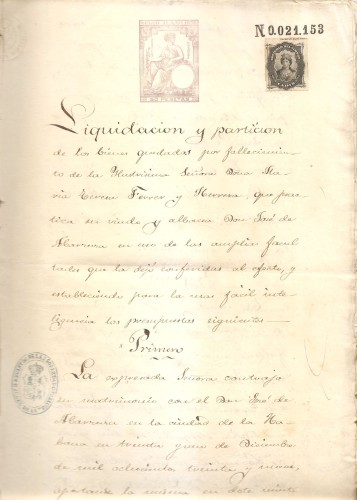 N 0.021.153
Liquidacion y particion
de los bienes quedados por fallecimien-
to de la Señora Doña Ma-
ria Teresa Ferrer y Herrera, que prac-
tica su viudo y albacea Don José de
en uso de las amplias facul-
tades que le dejó conferidas al efecto, y
estableciendo para la mas fácil inte-
ligencia los presupuestos siguientes
Primero
La espresada Señora contrajo
matrimonio con el Don José de
en la ciudad de la Ha-
bana en treinta y uno de Diciembre
de mil ochocientos treinta y nueve,
aportando la misma en dote veinte